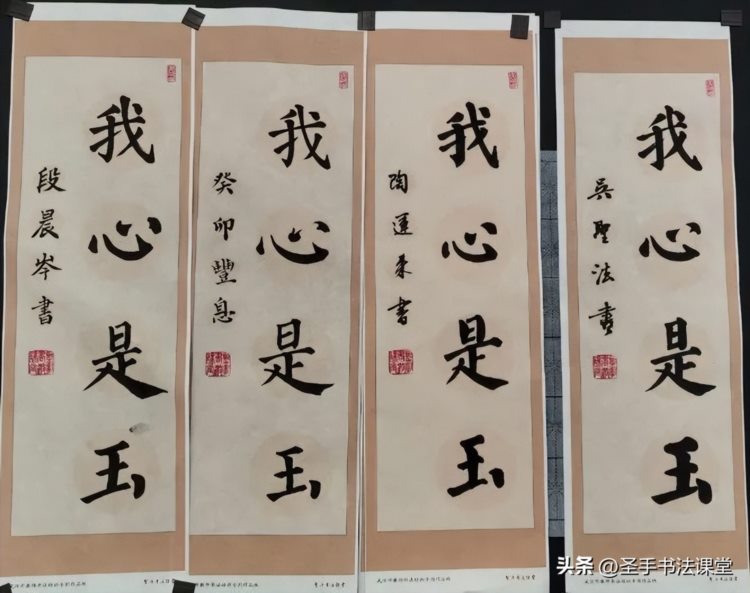 我心是玉
段晨岑書
我心是玉
癸卯豐息
我心是玉
陶運來書
我心是玉
吴聖法書
头条 @圣手书法课堂